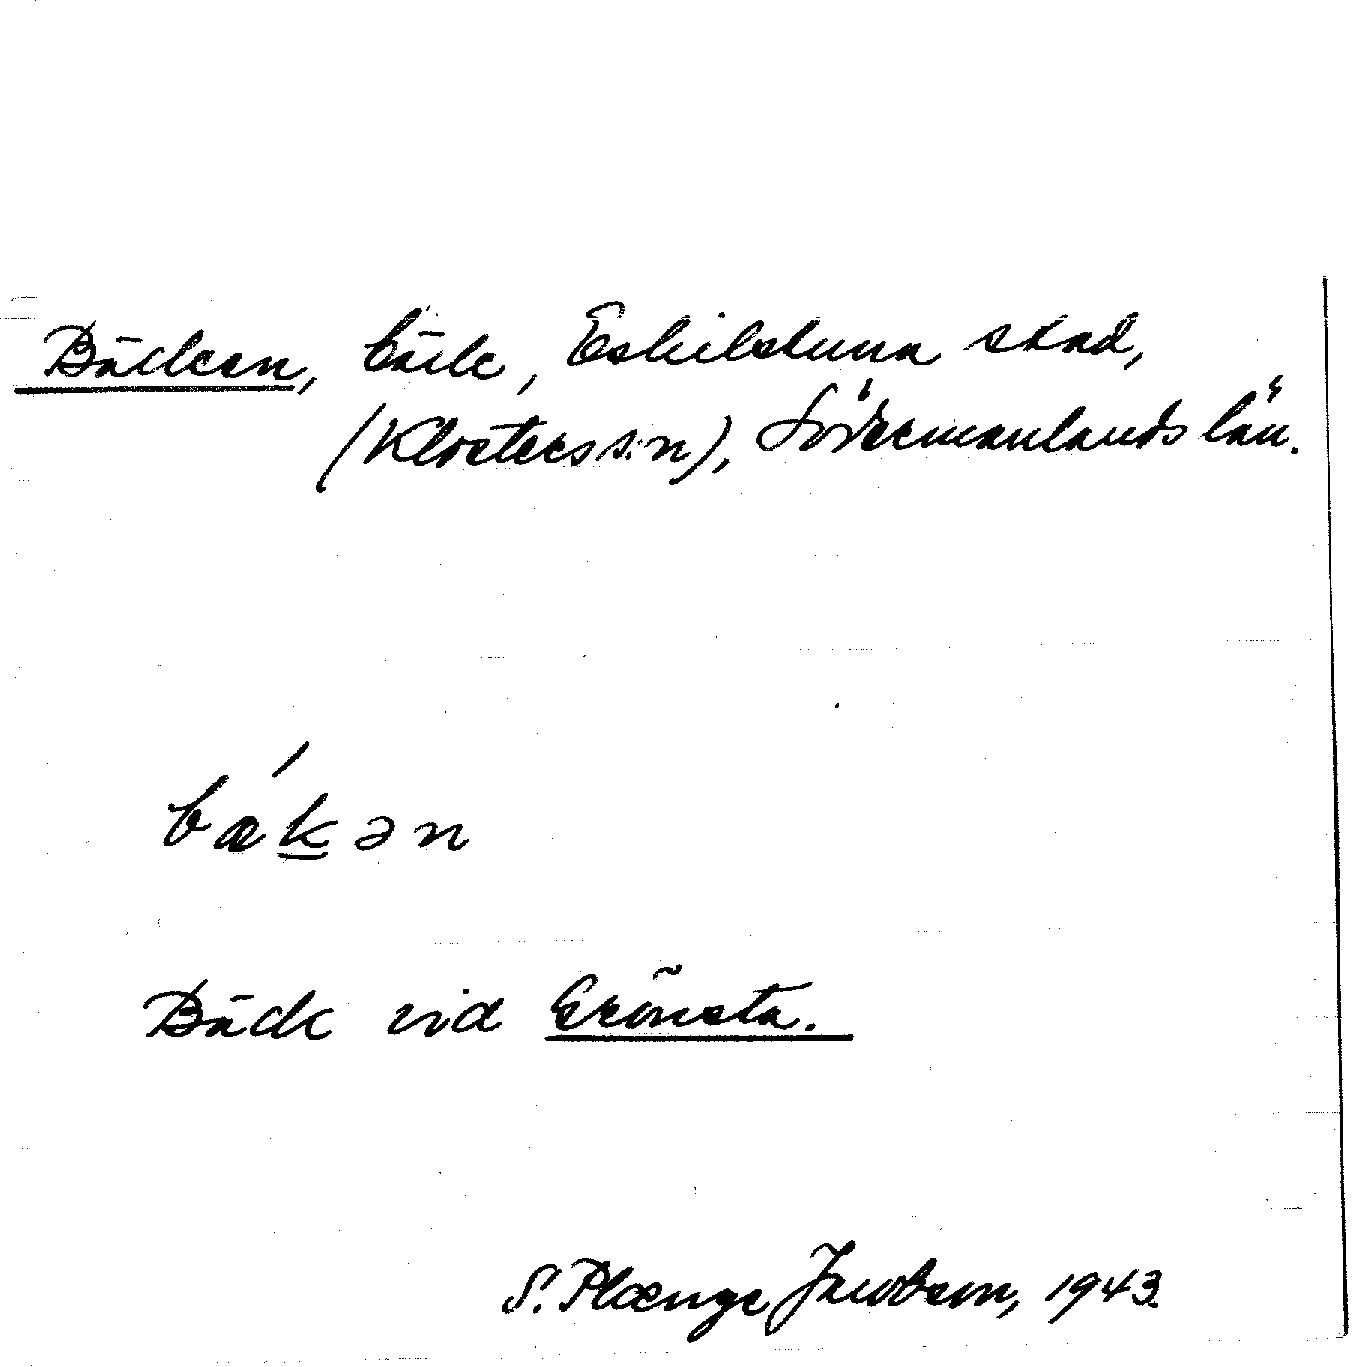 Bäcken, bäck, Eskilstuna stad,
(Klosters s:n), Södermanlands län.
bæ´k̲ən
Bäck vid Grönsta.
S. Plœnge Jacobson, 1943.